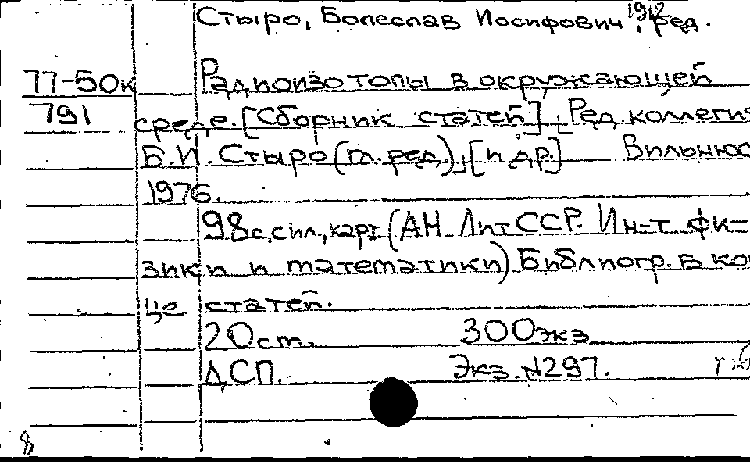 Стыро, Болеслав Иосифович, 1912, ред.
77-50к Радиоизотопы в окружающей
791 среде. [Сборник статей]. Ред. коллегия
Б.И. Стыро (гл. ред.), [и др.] Вильнюс
1976.
98с, с ил., карт (АН ЛитССР. Ин-т фи-
зики и математики) Библиогр. в кон
це статей.
20 ст. 300 экз
ДСП. Экз. №297.
8